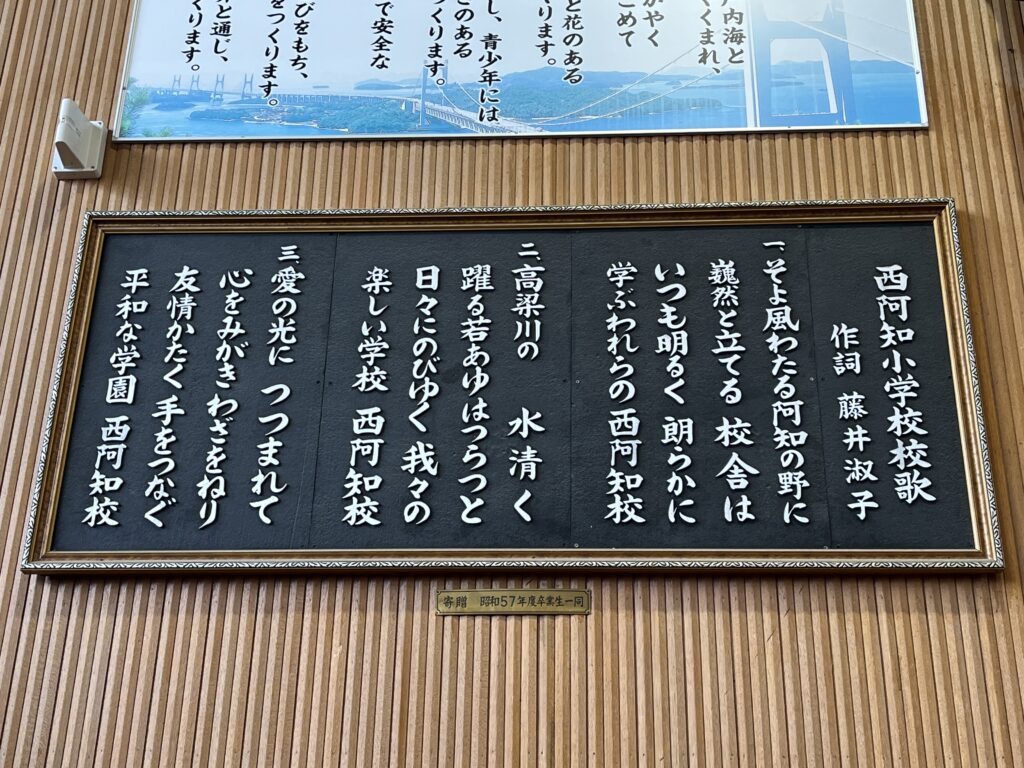 戸内海と
くくまれ、
がやく
こめて
と花のある
くります。
し、青少年には
このある
つくります。
で安全な
びをもち、
をつくります。
と通じ、
くります。
西阿知小学校校歌
作詞 藤井淑子
一、そよ風わたる阿知の野に
巍然と立てる 校舎は
いつも明るく 朗らかに
学ぶわれらの 西阿知校
二、高梁川の 水清く
躍る若あゆはつらつと
日々にのびゆく 我々の
楽しい学校 西阿知校
三、愛の光に つつまれて
心をみがき わざをねり
友情かたく 手をつなぐ
平和な学園 西阿知校
寄贈 昭和57年度卒業生一同